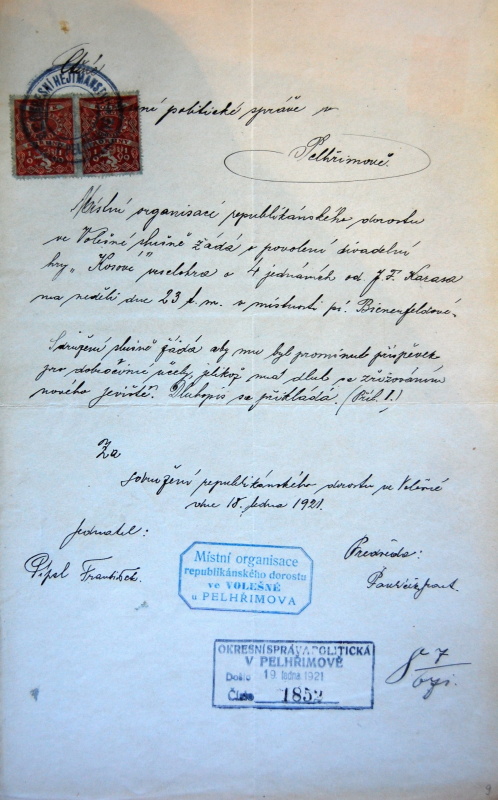 ní politické správě v
Pelhřimově.
Místní organisace republikánského dorostu
ve Volešné slušně žádá o povolení divadelní
hry „Kosové" veselohra o 4 jednáních od J. F. Karasa
na neděli dne 23 t. m. v místnosti pí. Bienenfeldové.
Sdružení slušně žádá aby mu byl prominut příspěvek
pro dobročinné účely, jelikož má dluh se zřizováním
nového jeviště. Dluhopis se přikládá. (Příl. 1.)
Za
sdružení republikánského dorostu ve Volešné
dne 18. ledna 1921.
Jednatel:
František.
Předseda:
Místní organisace
republikánského dorostu
ve VOLEŠNÉ
u PELHŘIMOVA
OKRESNÍ SPRÁVA POLITICKÁ
V PELHŘIMOVĚ
Došlo 19. ledna 1921
Číslo 1852